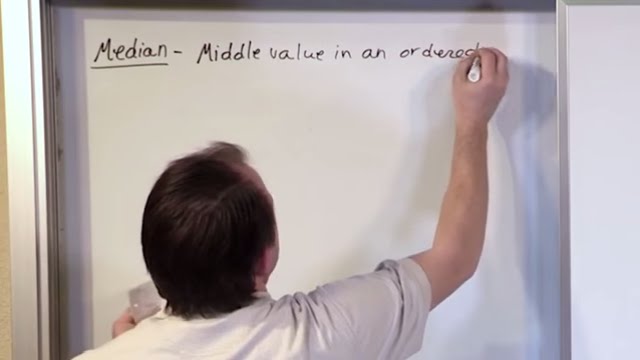 Median - Middle value in an ordered